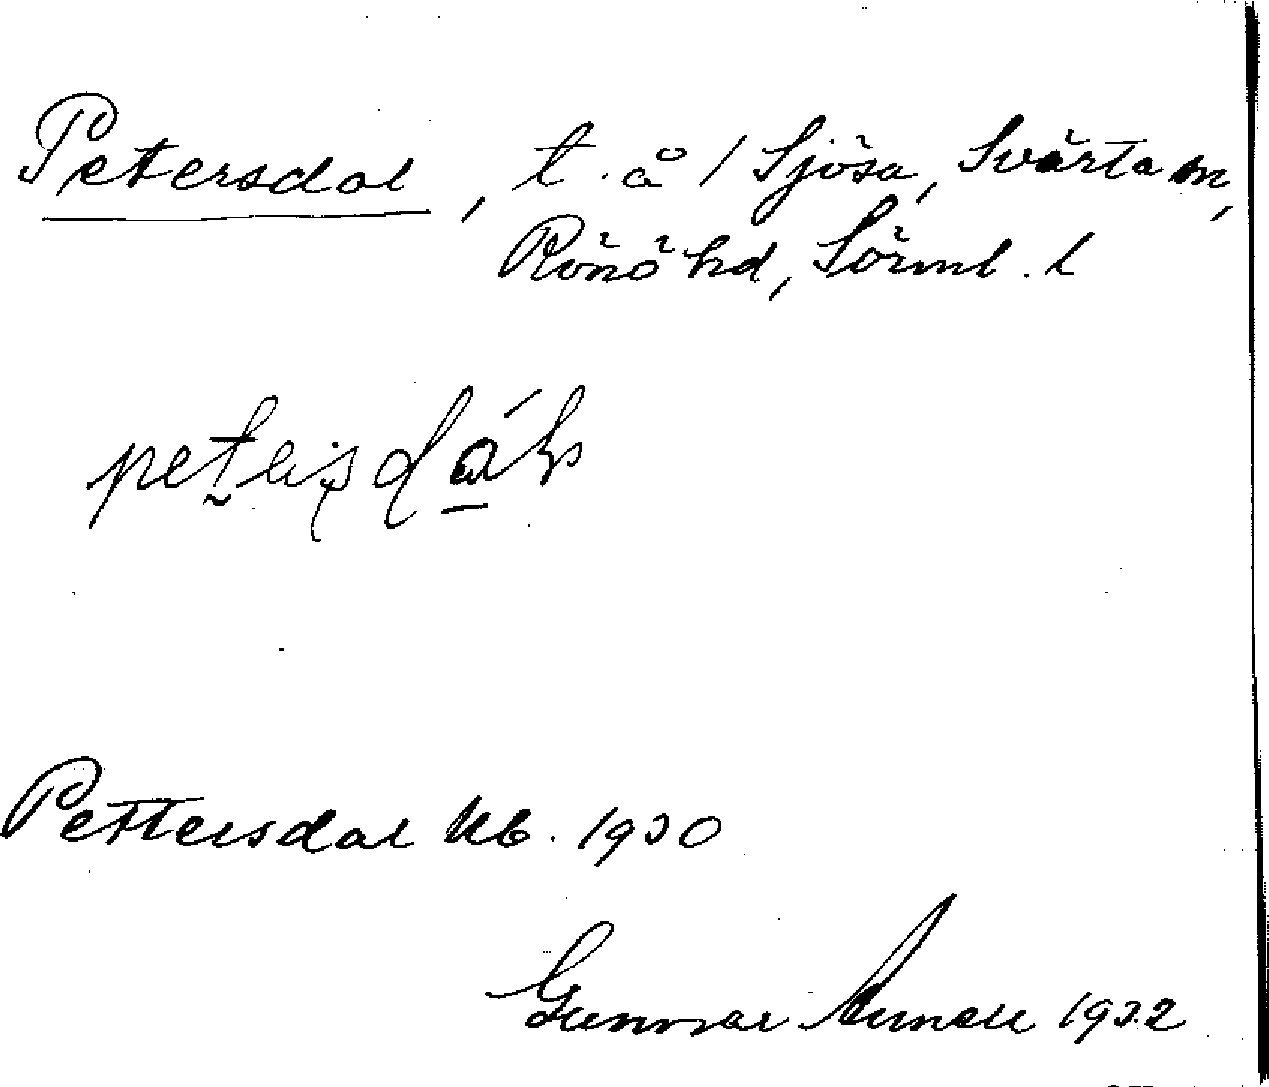 Petersdal, t. å / Sjösa, Svärta sn,
Rönö hd, Sörml. l
Pettersdal kb. 1930
Gunnar Annell 1932